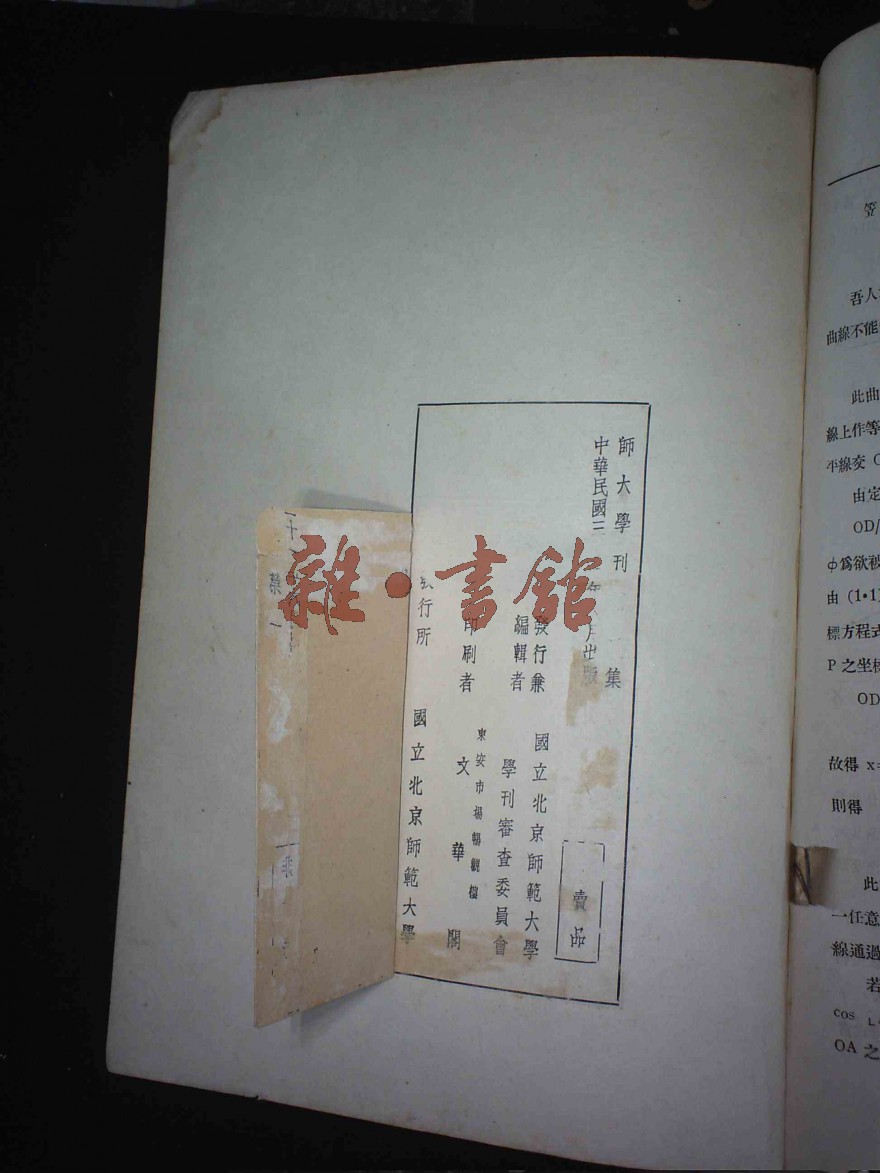 師大學刊 集
中華民國三 年 月出版
賣品
發行兼
編輯者
國立北京師範大學
學刊審查委員會
印刷者
東安市場暢觀樓
文華閣
行所 國立北京師範大學
雜·書館
吾人
曲線不能
此曲
線上作等
平線交
由定
OD/
φ爲欲被
由 (1·1)
標方程式
P 之坐標
OD
故得 x=
則得
此
一任意
線通過
若
cos
OA 之